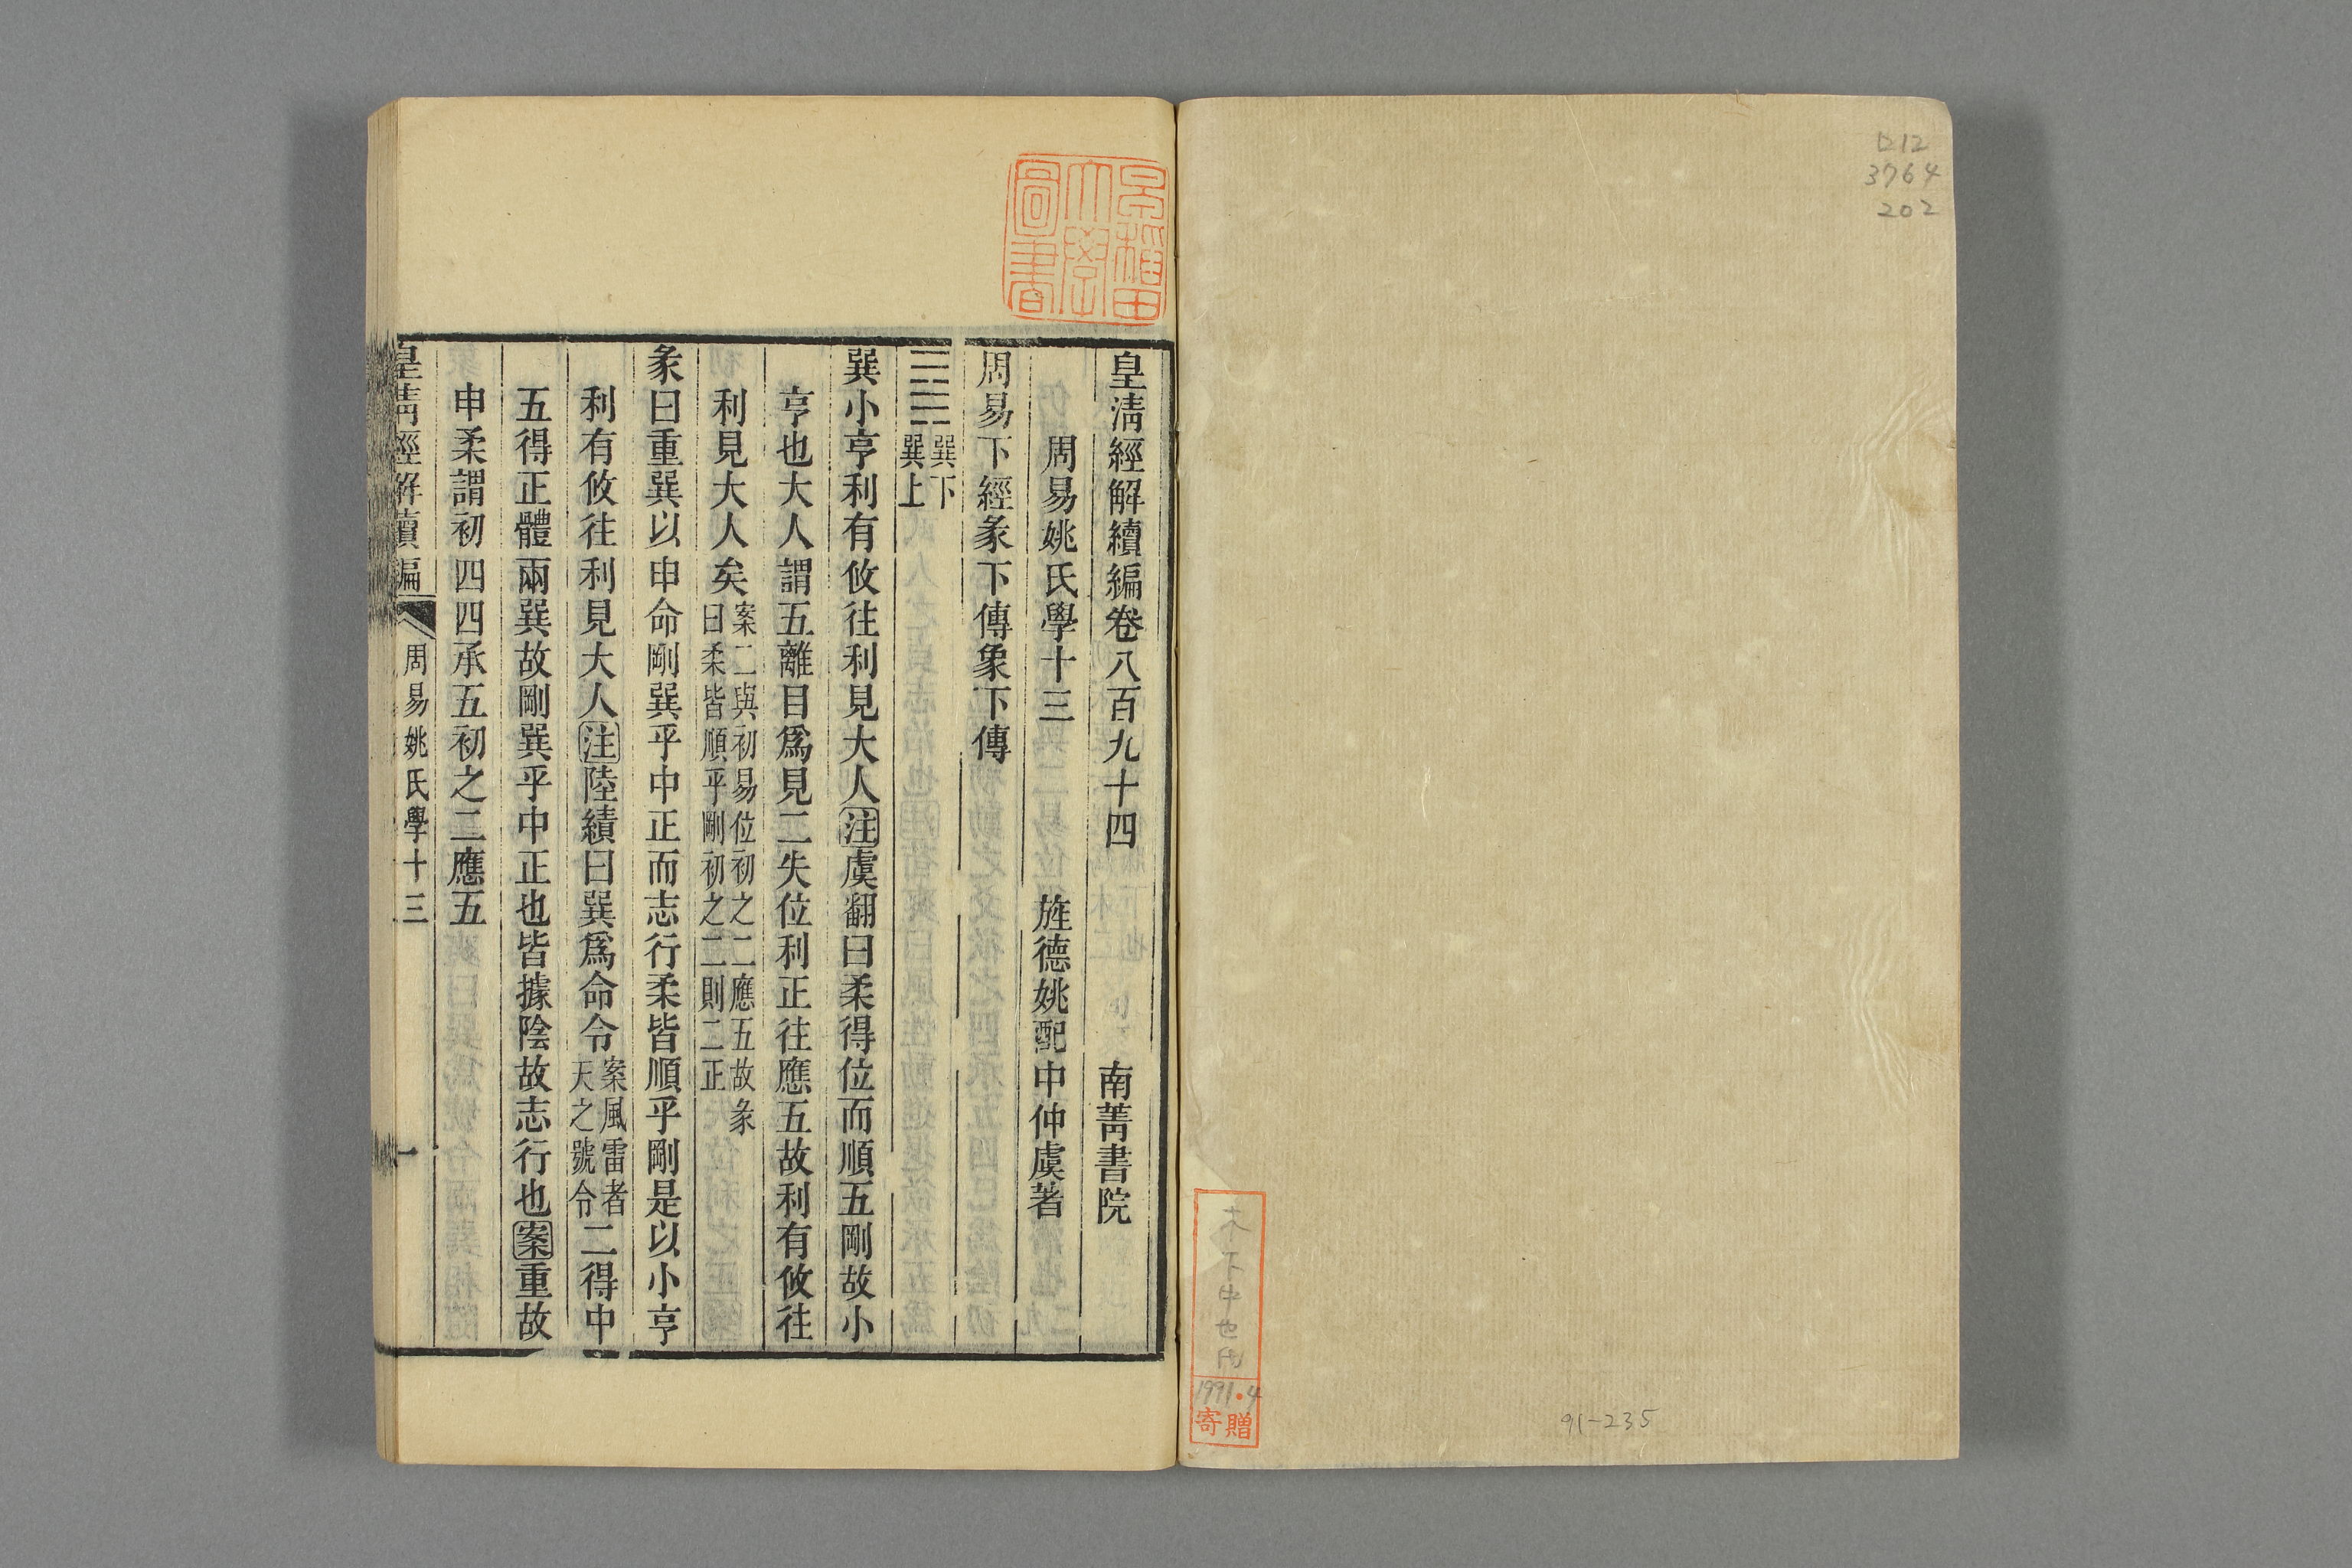 皇淸經解續編卷八百九十四　南菁書院
周易姚氏學十三　旌德姚配中仲虞著
周易下經彖下傳象下傳
䷸ 巽下
巽上
巽小亨利有攸往利見大人注虞翻曰柔得位而順五剛故小
亨也大人謂五離目爲見二失位利正往應五故利有攸往
利見大人矣案二與初易位初之二應五故彖
曰柔皆順乎剛初之二則二正
彖曰重巽以申命剛巽乎中正而志行柔皆順乎剛是以小亨
利有攸往利見大人注陸績曰巽爲命令案風雷者
天之號令二得中
五得正體兩巽故剛巽乎中正也皆據陰故志行也案重故
申柔謂初四四承五初之二應五
皇淸經解續編　周易姚氏學十三　一
早稻田大學圖書
D12
3764
202
1991.4
寄贈
91-235